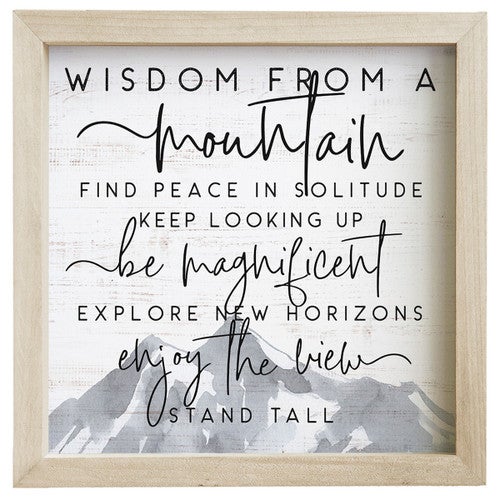 WISDOM FROM A
mountain
FIND PEACE IN SOLITUDE
KEEP LOOKING UP
be magnificent
EXPLORE NEW HORIZONS
enjoy the view
STAND TALL